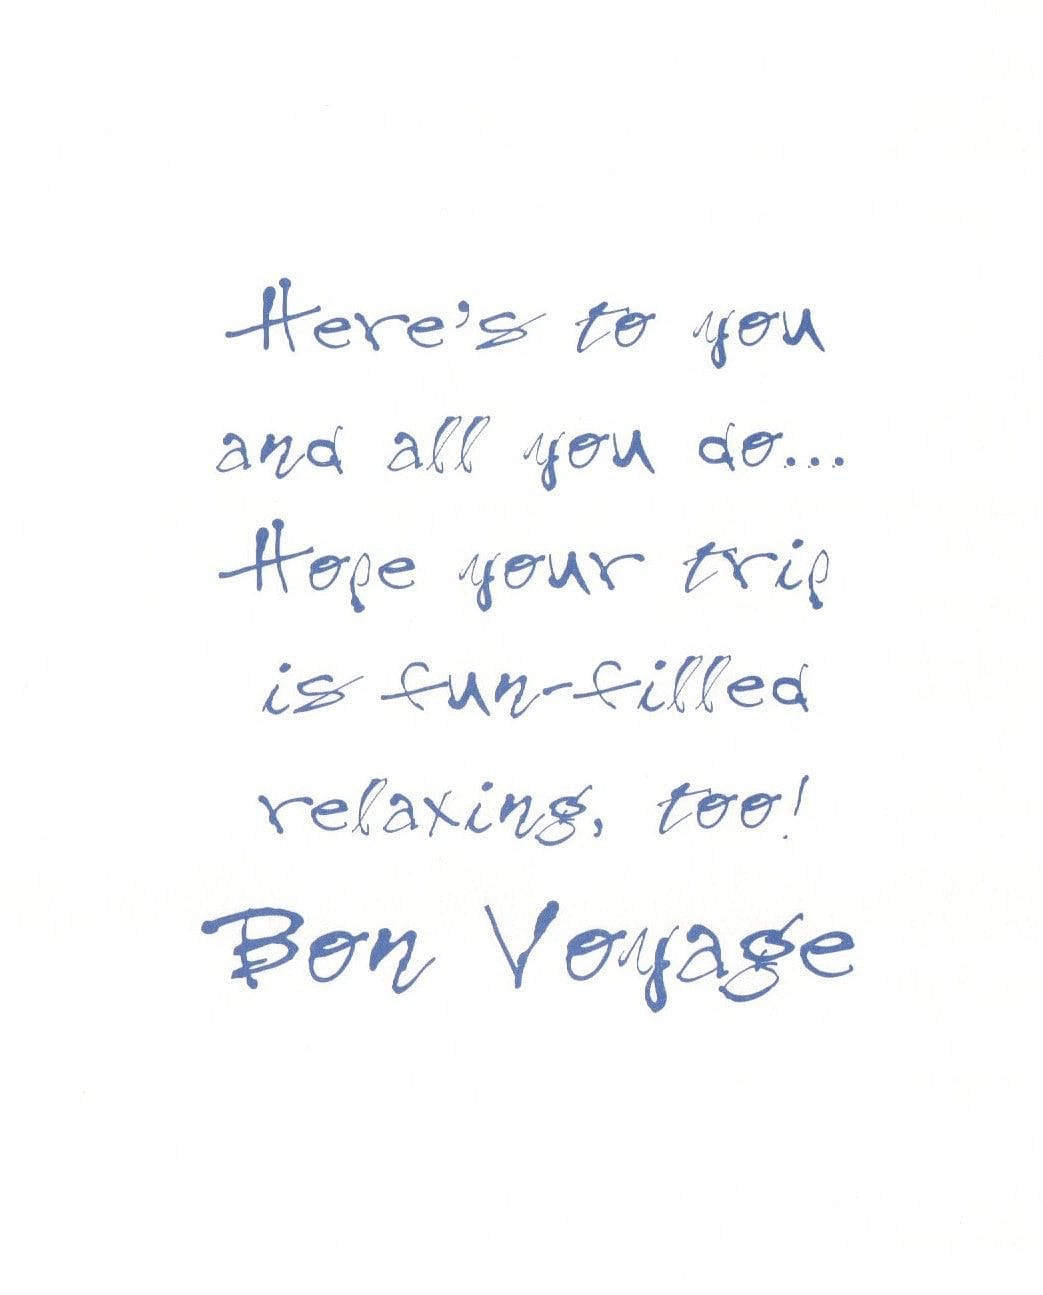 Here's to you
and all you do...
Hope your trip
is fun-filled
relaxing, too!
Bon Voyage